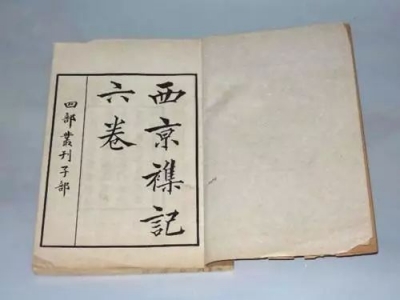 西京襍記
六卷
四部叢刊子部